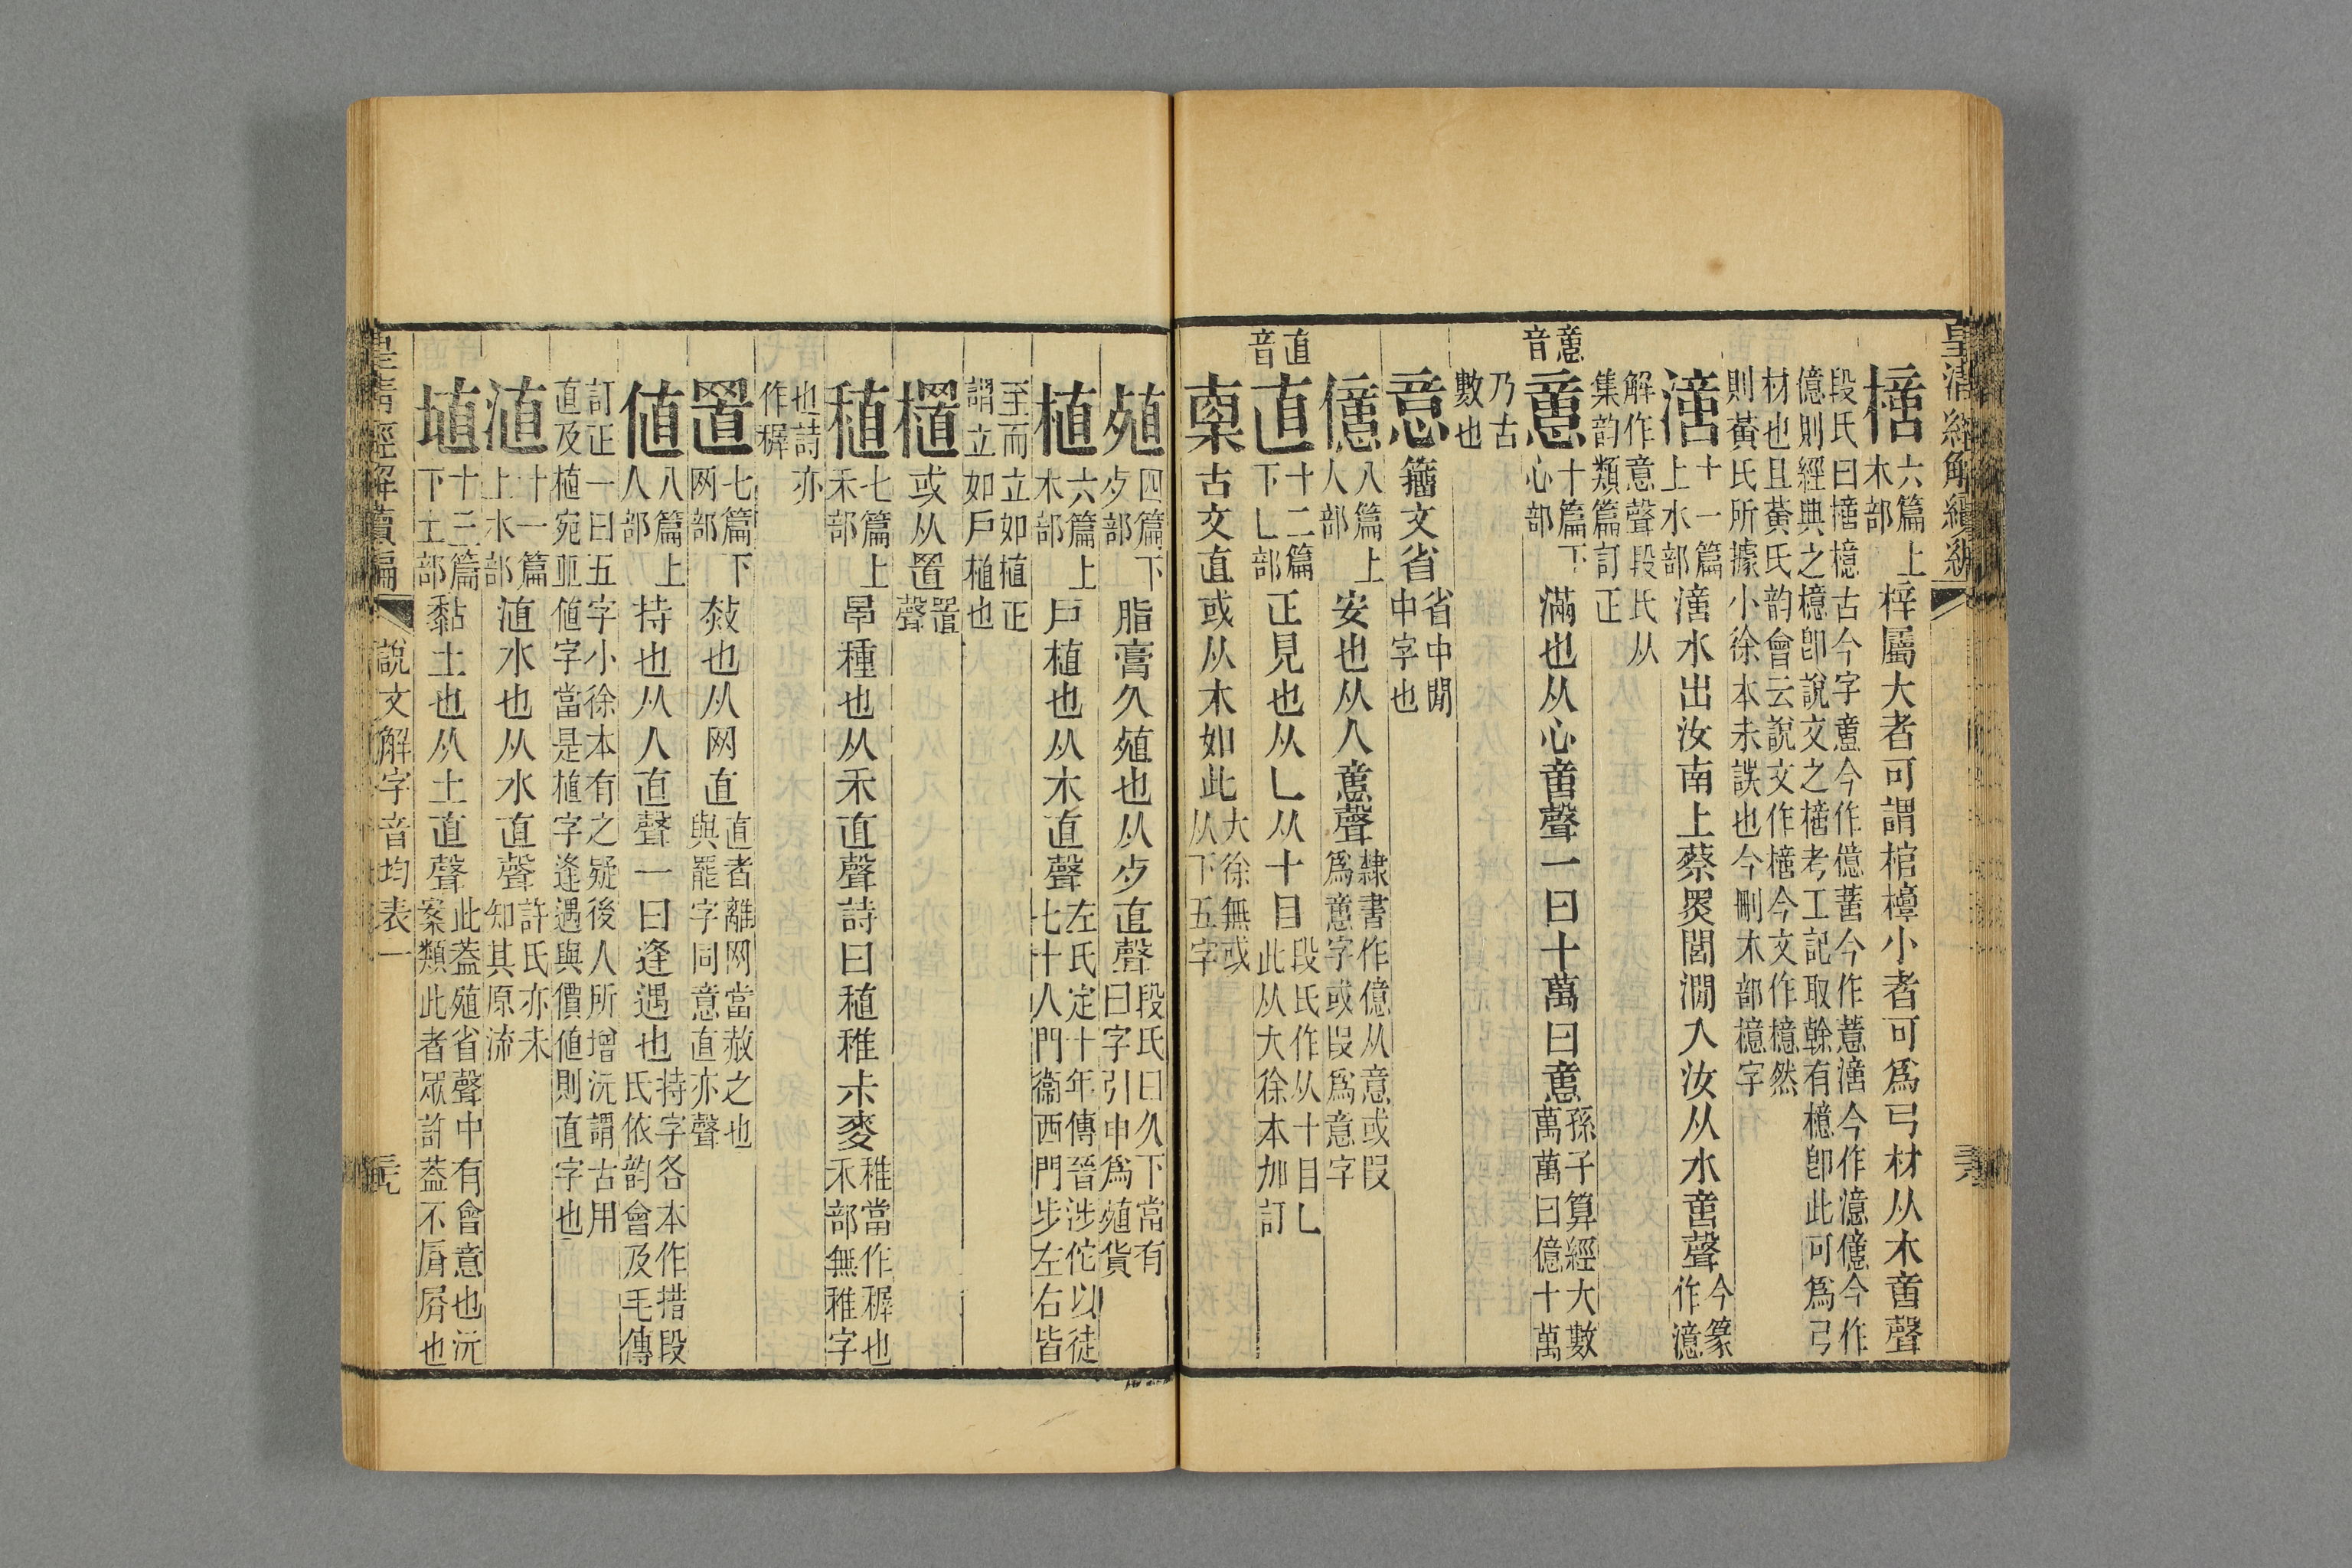 皇清經解續編
檍六篇上木部梓屬大者可謂棺槨小者可爲弓材从木䇾聲
段氏曰檍檍古今字䇾今作億蓄今作薏澺今作澺億今作億則經典之檍卽說文之檍考工記取榦有檍卽此可爲弓
材也且黃氏韵會云說文作檍今文作檍然則黃氏所據小徐本未誤也今刪木部檍字
澺十一篇上水部澺水出汝南上蔡㷭閭澗入汝从水䇾聲今篆作澺
解作意聲段氏从集韵類篇訂正
意音
意十篇下心部滿也从心䇾聲一曰十萬曰意孫子算經大數萬萬曰億十萬
乃古數也
意籒文省省中閒中字也
億八篇上人部安也从人意聲隸書作億从意或叚爲意字或叚爲意字
直音
直十二篇下乚部正見也从乚从十目段氏作从十目乚此从大徐本加訂
𣖴古文直或从木如此大徐無或从下五字
殖四篇下歺部脂膏久殖也从歺直聲段氏曰久下當有曰字引申爲殖貨
植六篇上木部戶植也从木直聲左氏定十年傳晉涉佗以徒七十人門衞西門步左右皆
至而立如植正謂立如戶植也
櫃或从置置聲
稙七篇上禾部早種也从禾直聲詩曰稙稚尗麥稚當作稺也禾部無稚字
也詩亦作稺
置七篇下网部赦也从网直直者離网當赦之也與罷字同意直亦聲
値八篇上人部持也从人直聲一曰逢遇也持字各本作措段氏依韵會及毛傳
訂正一曰五字小徐本有之疑後人所增沅謂古用直及植宛亚値字當是植字逢遇與價値則直字也
淔十一篇上水部淔水也从水直聲許氏亦未知其原流
埴十三篇下土部黏土也从土直聲此蓋殖省聲中有會意也沅案類此者眾許蓋不屑屑也
皇清經解續編
說文解字音均表一